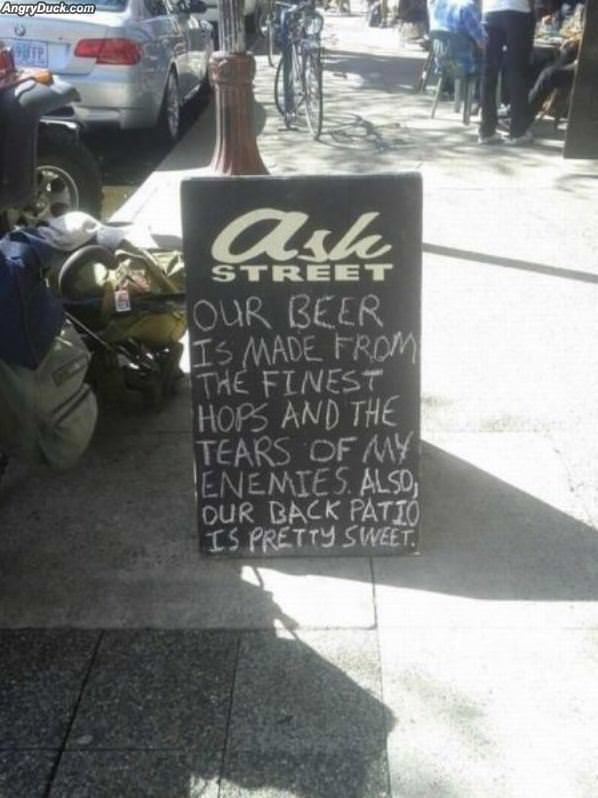 AngryDuck.com
Ash
STREET
OUR BEER
IS MADE FROM
THE FINEST
HOPS AND THE
TEARS OF MY
ENEMIES. ALSO,
OUR BACK PATIO
IS PRETTY SWEET.